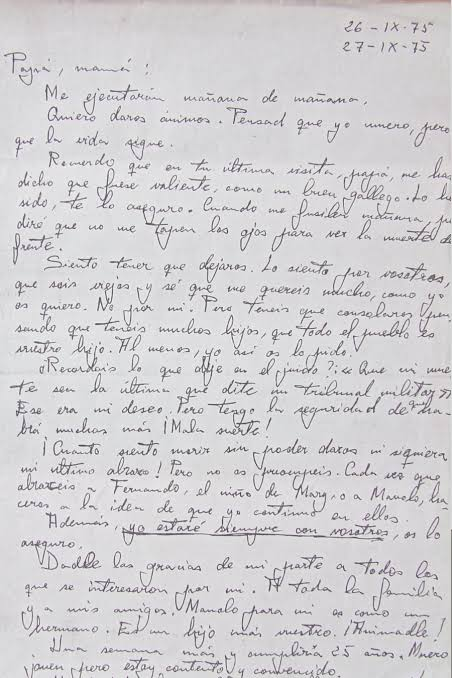 26-IX-75
27-IX-75
Papá, mamá:
Me ejecutarán mañana de mañana.
Quiero daros ánimos. Pensad que yo muero, pero
que la vida sigue.
Recuerdo que en tu última visita, papá, me has
dicho que fuese valiente, como un buen gallego. Lo he
sido, te lo aseguro. Cuando me fusilen mañana, pe
diré que no me tapen los ojos para ver la muerte de
frente.
Siento tener que dejaros. Lo siento por vosotros,
que sois viejos y sé que me quereis mucho, como yo
os quiero. No por mí. Pero teneis que consolaros pen
sando que teneis muchos hijos, que todo el pueblo es
vuestro hijo. Al menos, yo así os lo pido.
¿Recordais lo que dije en el juicio? «Que mi muer
te sea la última que dite un tribunal militar»
Ese era mi deseo. Pero tengo la seguridad de que ha
brá muchas más ¡Mala suerte!
¡Cuanto siento morir sin poder daros ni siquiera
mi último abrazo! Pero no os preocupeis. Cada vez que
abraceis a Fernando, el niño de Mary, o a Manolo, ha
ceros a la idea de que yo continúo en ellos.
Además, yo estaré siempre con vosotros, os lo
aseguro.
Dadle las gracias de mi parte a todos los
que se interesaron por mí. A toda la familia
y a mis amigos. Manolo para mí es como un
hermano. Es un hijo más vuestro. ¡Animadle!
Una semana más y cumpliría 25 años. Muero
joven pero estoy contento y convencido.